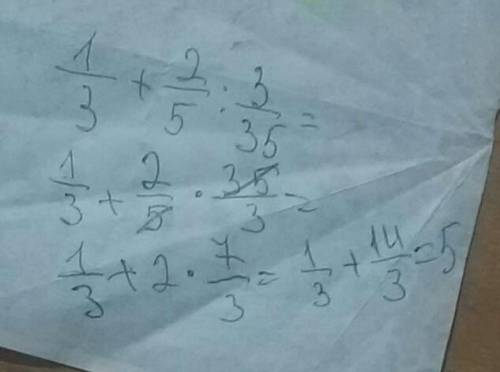 1/3 + 2/5 : 3/35 =
1/3 + 2/5 · 35/3 =
1/3 + 2 · 7/3 = 1/3 + 14/3 = 5